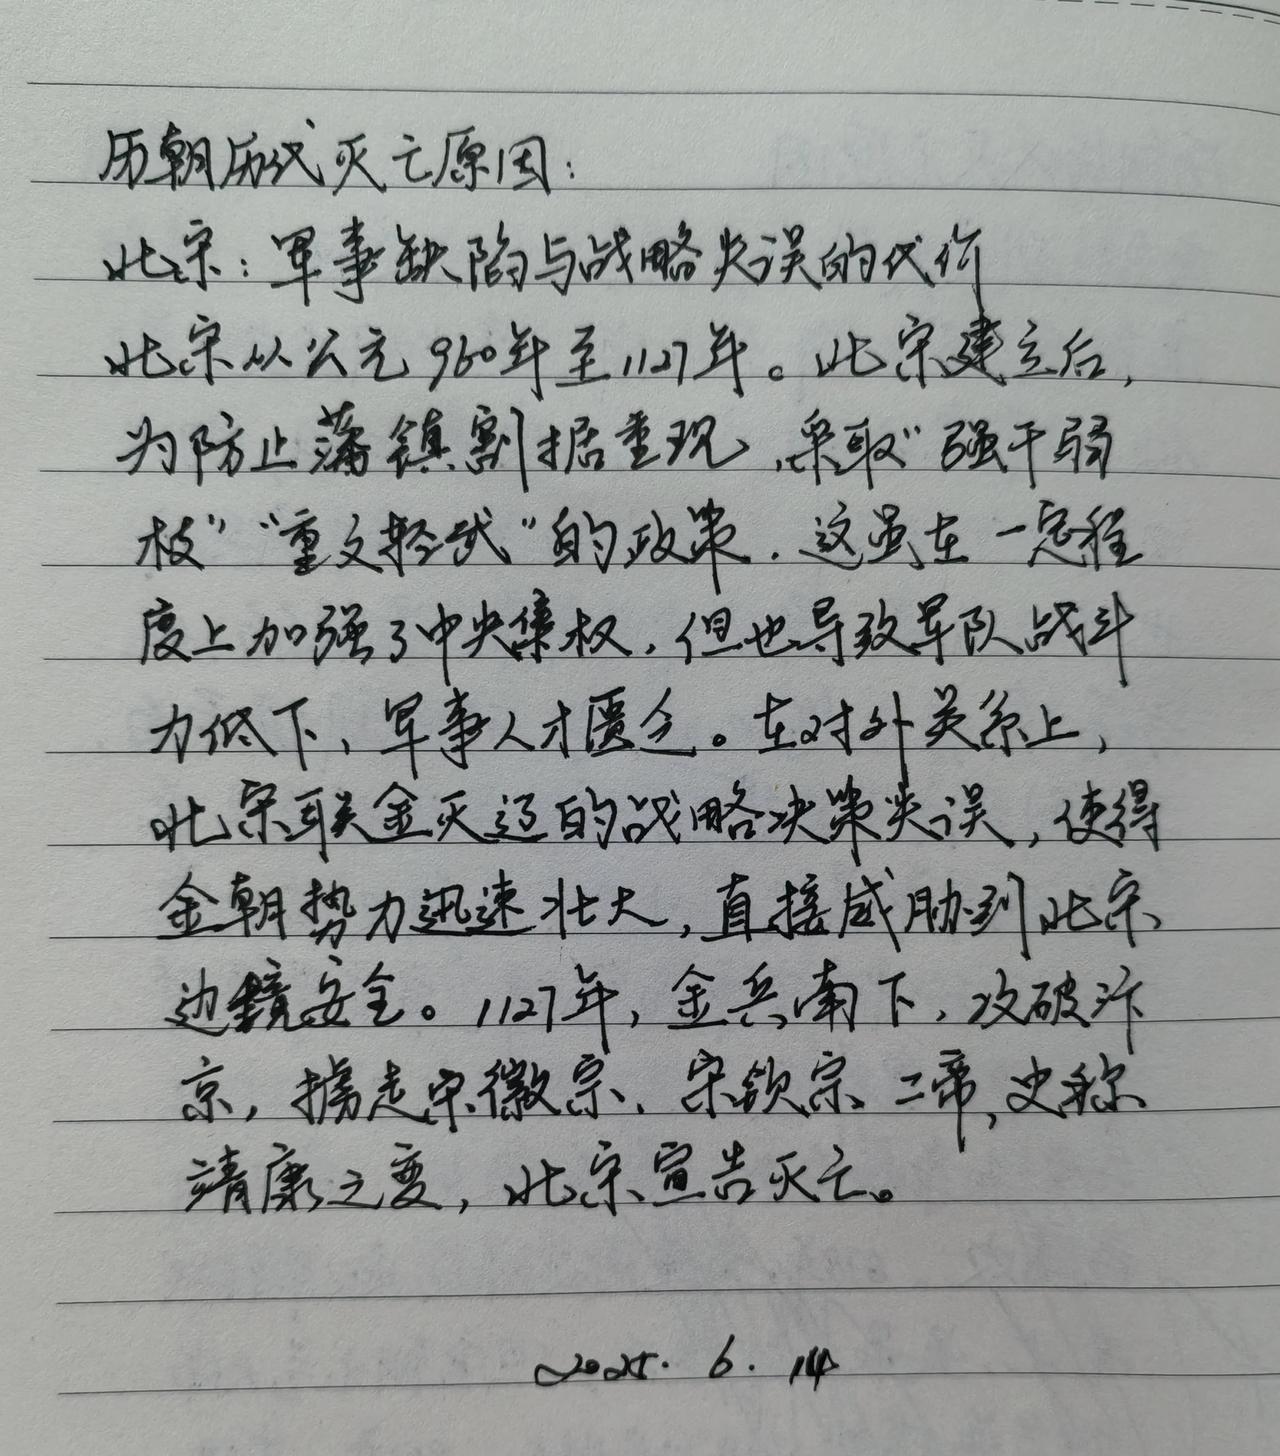 历朝历代灭亡原因：
北宋：军事缺陷与战略失误的代价
北宋从公元960年至1127年。北宋建立后，
为防止藩镇割据重现，采取“强干弱
枝”“重文轻武”的政策．这虽在一定程
度上加强了中央集权，但也导致军队战斗
力低下，军事人才匮乏。在对外关系上，
北宋联金灭辽的战略决策失误，使得
金朝势力迅速壮大，直接威胁到北宋
边境安全。1127年，金兵南下，攻破汴
京，掳走宋徽宗、宋钦宗二帝，史称
靖康之变，北宋宣告灭亡。
2025.6.14